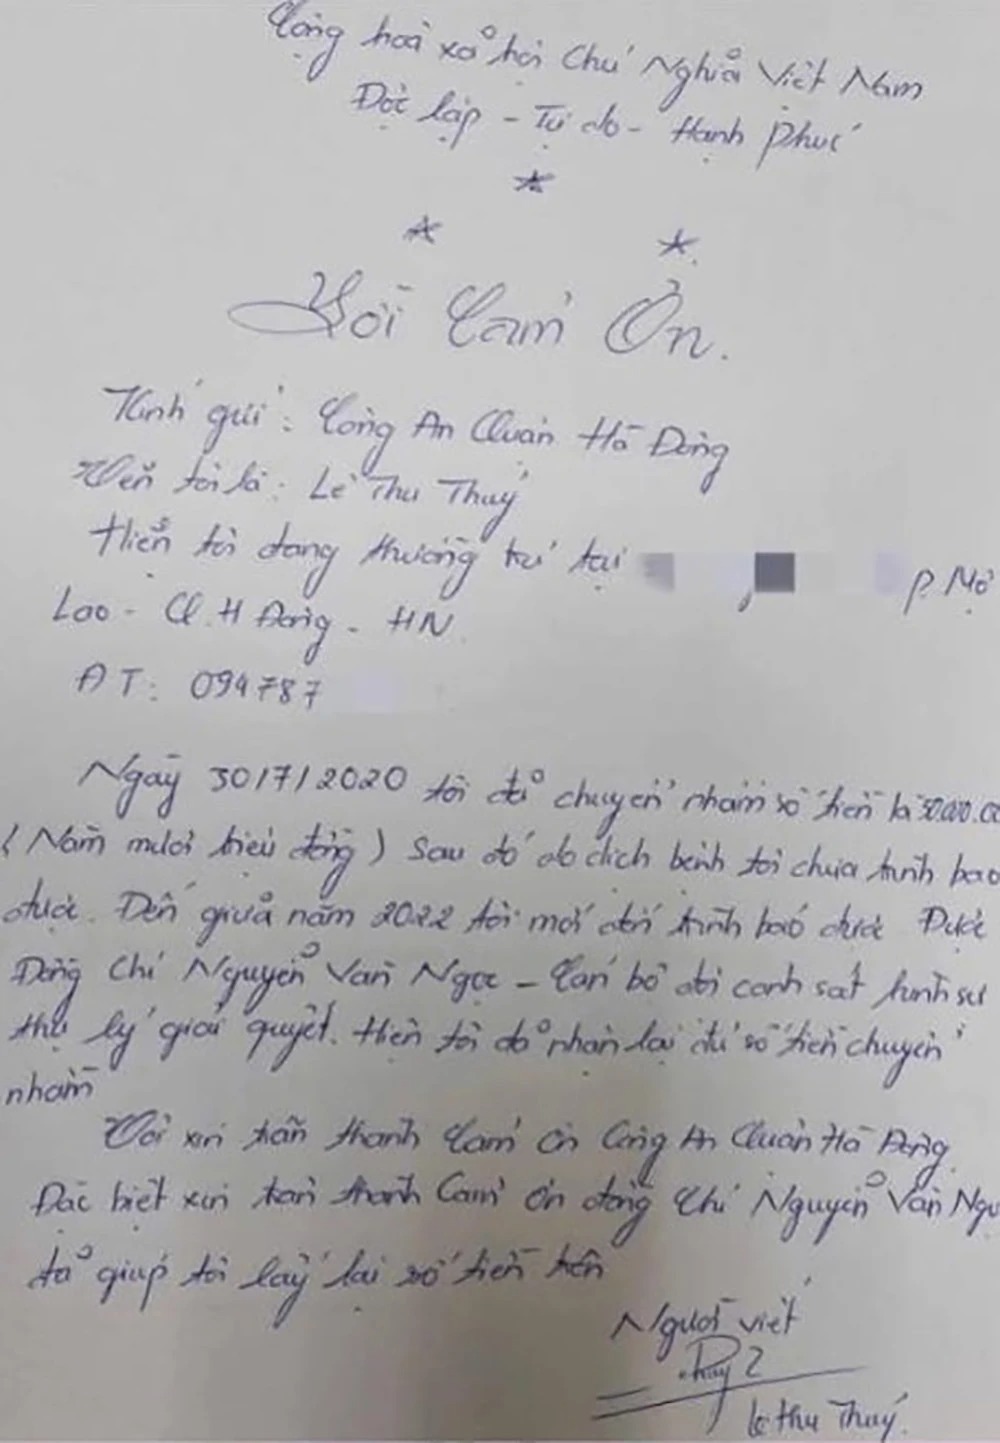 Cộng hoà xã hội Chủ Nghĩa Việt Nam
Độc lập - Tự do - Hạnh Phúc
Lời Cảm Ơn.
Kính gửi: Công An Quận Hà Đông
Tên tôi là: Lê Thu Thuỷ
Hiện tôi đang thường trú tại P. Mộ
Lao - Q. H Đông - HN
ĐT: 094787
Ngày 30/7/2020 tôi đã chuyển nhầm số tiền là 50.000.00
(Năm mươi triệu đồng) Sau đó do dịch bệnh tôi chưa trình báo
được. Đến giữa năm 2022 tôi mới đến trình báo được Được
Đồng Chí Nguyễn Văn Ngọc - Cán bộ đội cảnh sát hình sự
thụ lý giải quyết. Hiện tôi đã nhận lại đủ số tiền chuyển
nhầm
Tôi xin trân thành Cảm ơn Công An Quận Hà Đông
Đặc biệt xin trân thành Cảm ơn đồng Chí Nguyễn Văn Ngọ
đã giúp tôi lấy lại số tiền trên
Người viết
Thuỷ
Lê Thu Thuỷ